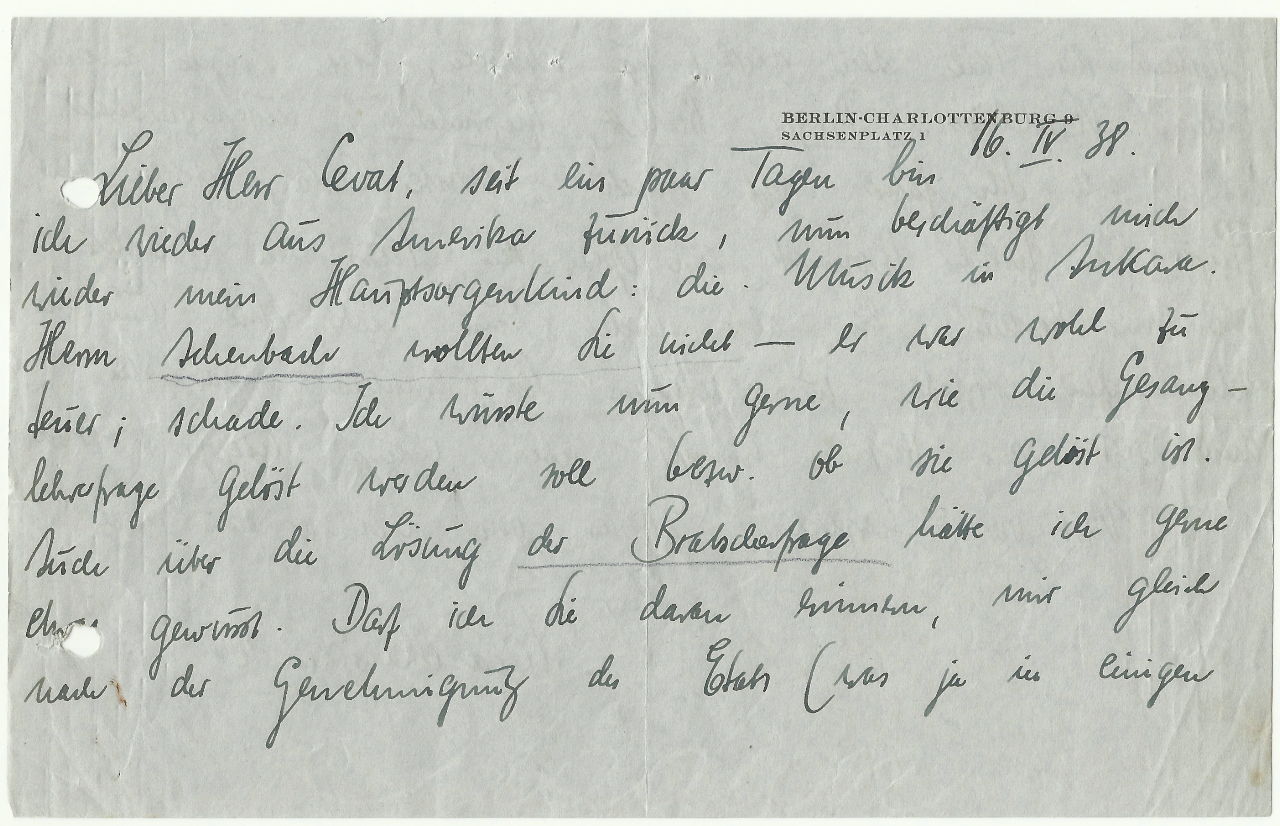 BERLIN-CHARLOTTENBURG 9
SACHSENPLATZ 1
16. IV. 38.
Lieber Herr Cevat, seit ein paar Tagen bin
ich wieder aus Amerika zurück, nun beschäftigt mich
wieder mein Hauptsorgenkind: die Musik in Ankara.
Herrn Achenbach wollten Sie nicht — er war wohl zu
teuer; schade. Ich wüsste nun gerne, wie die Gesang-
lehrerfrage gelöst werden soll bezw. ob sie gelöst ist.
Auch über die Lösung der Bratscherfrage hätte ich gerne
etwas gewusst. Darf ich Sie daran erinnern, mir gleich
nach der Genehmigung des Etats (was ja in einigen